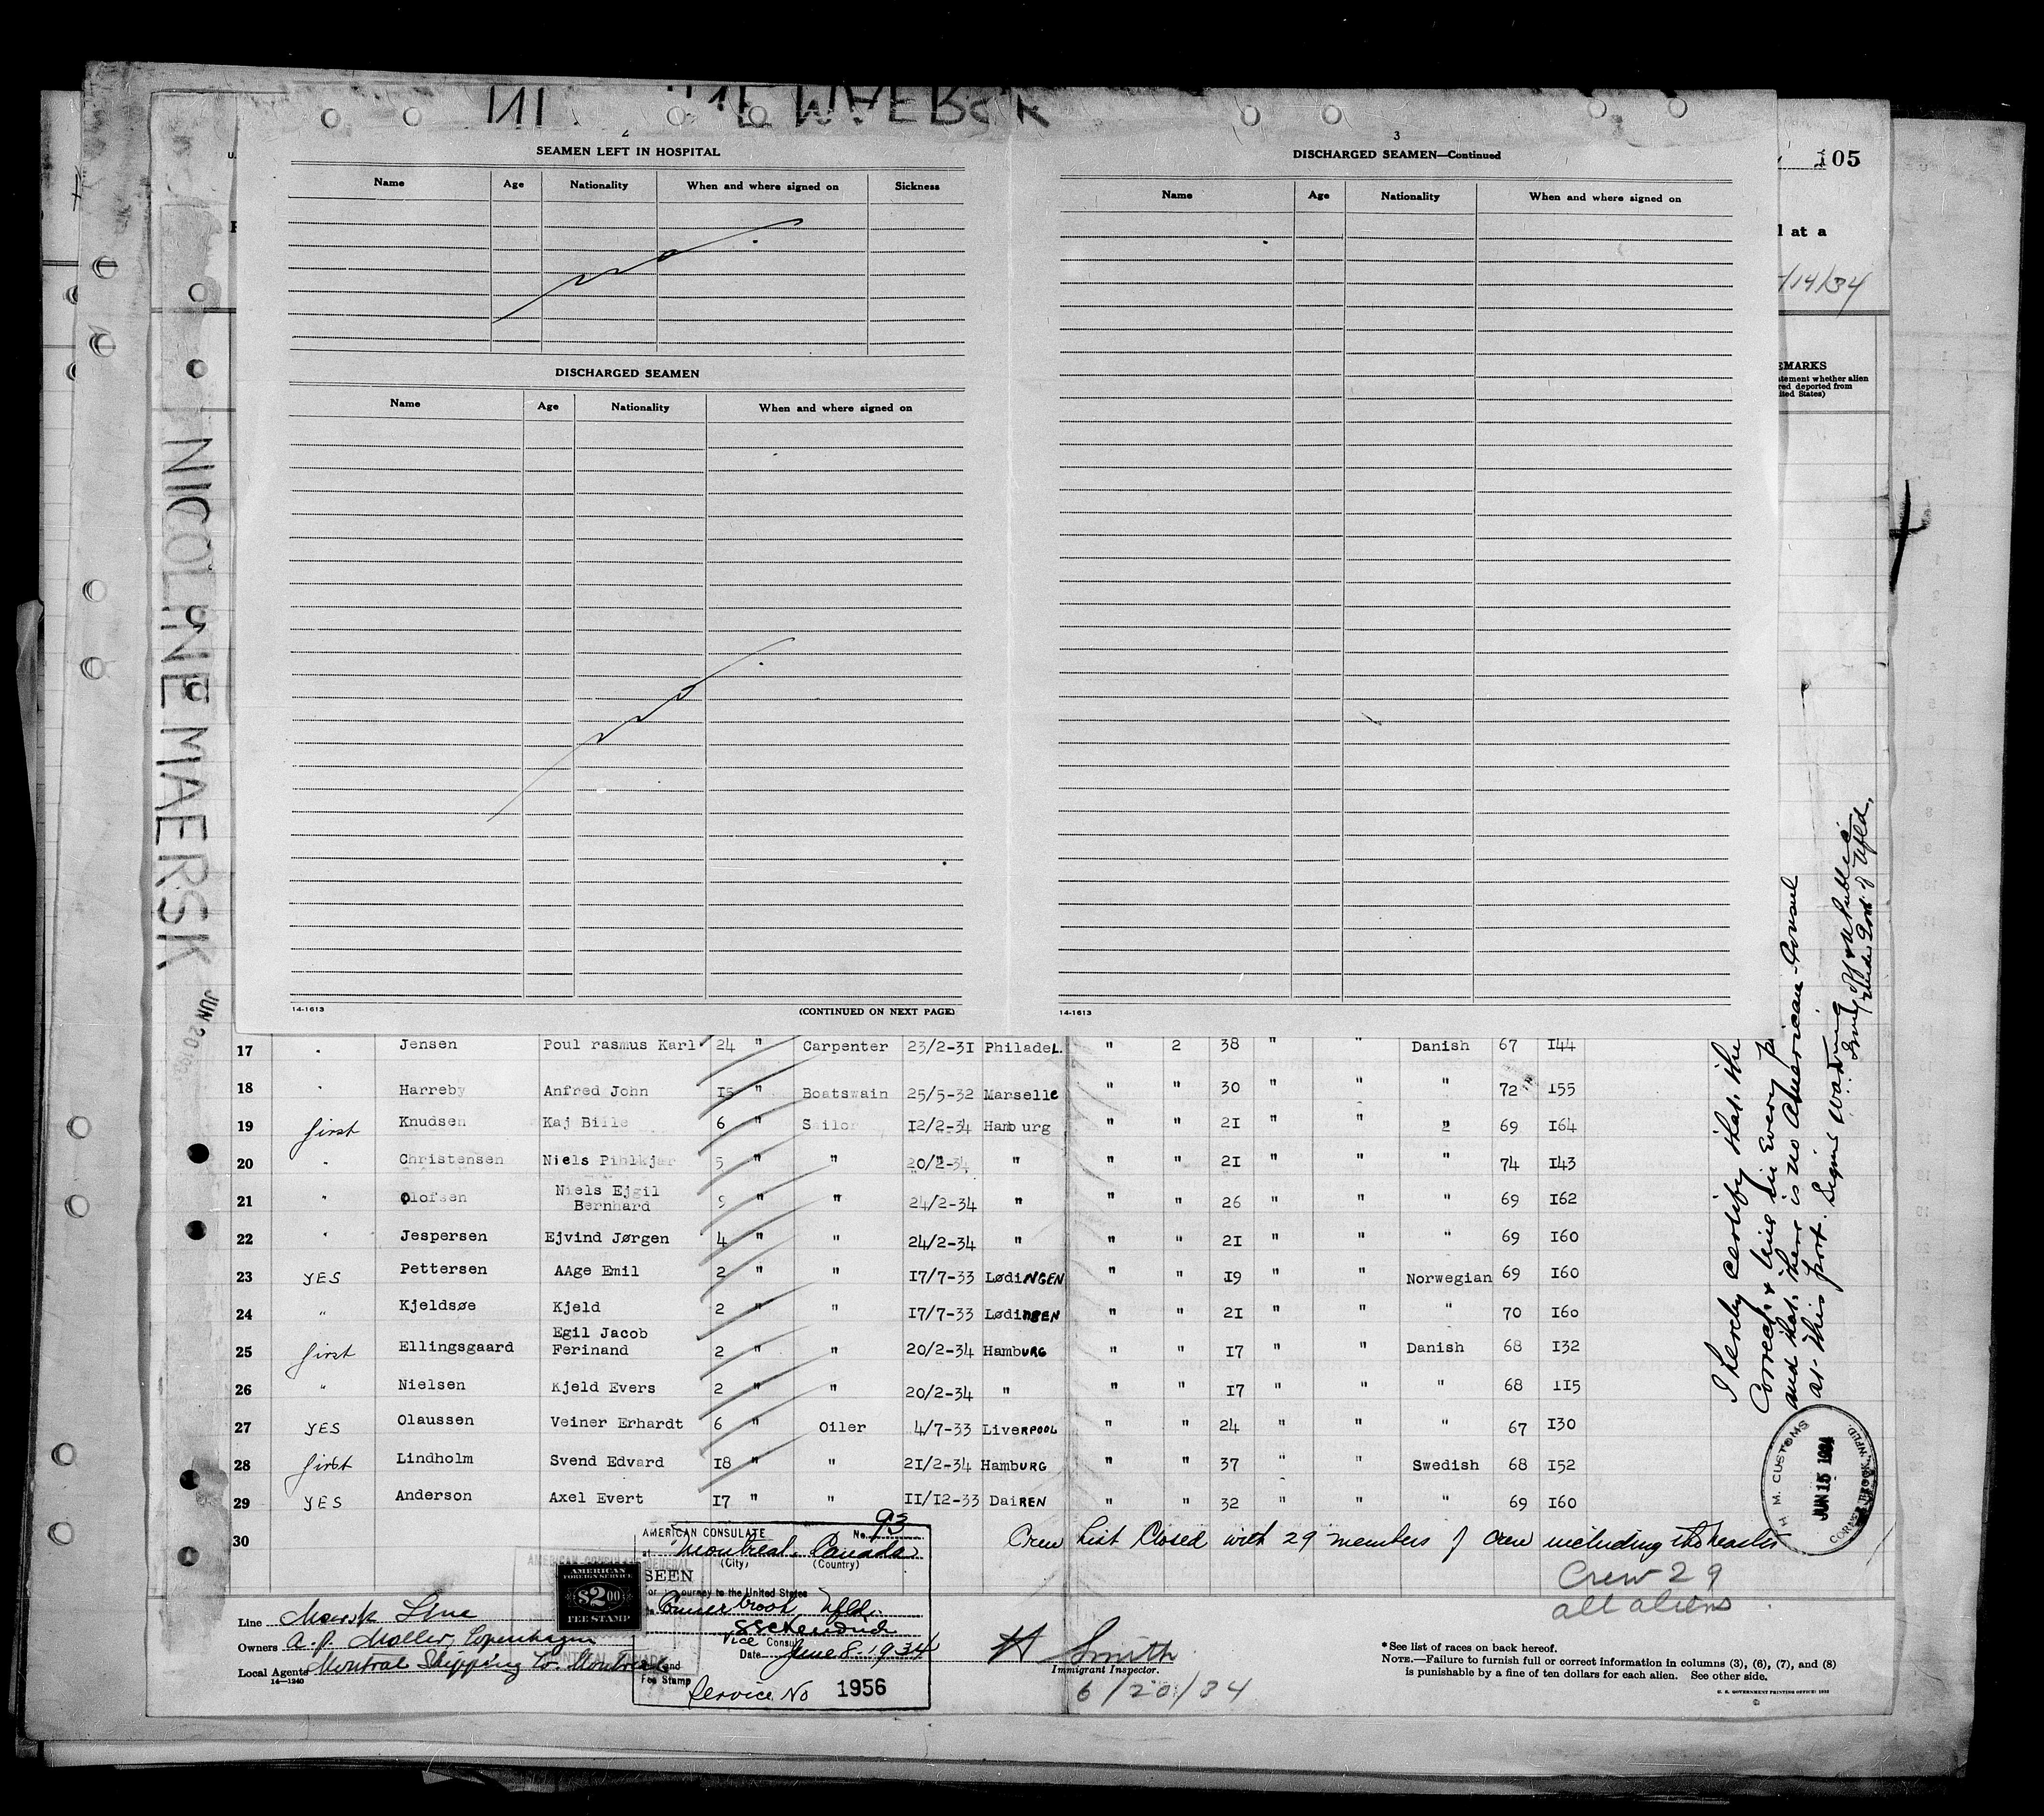 2
SEAMEN LEFT IN HOSPITAL
Name Age Nationality When and where signed on Sickness
DISCHARGED SEAMEN
Name Age Nationality When and where signed on
14-1613 (CONTINUED ON NEXT PAGE)
3
DISCHARGED SEAMEN—Continued
Name Age Nationality When and where signed on
14-1613
105
at a
/14/34
EMARKS
atement whether alien
red deported from
ited States)
NICOLINE MAERSK
JUN 20
17 " Jensen Poul rasmus Karl 24 " Carpenter 23/2-31 PhiladeL. " 2 38 " " Danish 67 144
18 " Harreby Anfred John 15 " Boatswain 25/5-32 Marselle " " 30 " " " 72 155
19 first Knudsen Kaj Bille 6 " Sailor 12/2-34 Hamburg " " 21 " " " 69 164
20 " Christensen Niels Pihlkjar 5 " " 20/2-34 " " " 21 " " " 74 143
21 " Olofsen Niels Ejgil Bernhard 9 " " 24/2-34 " " " 26 " " " 69 162
22 " Jespersen Ejvind Jørgen 4 " " 24/2-34 " " " 21 " " " 69 160
23 YES Pettersen AAge Emil 2 " " 17/7-33 LødiNGEN " " 19 " " Norwegian 69 160
24 " Kjeldsøe Kjeld 2 " " 17/7-33 LødiNGEN " " 21 " " " 70 160
25 first Ellingsgaard Egil Jacob Ferinand 2 " " 20/2-34 HambURG " " 17 " " Danish 68 132
26 " Nielsen Kjeld Evers 2 " " 20/2-34 " " " 17 " " " 68 115
27 YES Olaussen Veiner Erhardt 6 " Oiler 4/7-33 LiveRPOOL " " 24 " " " 67 130
28 first Lindholm Svend Edvard 18 " " 21/2-34 HambURG " " 37 " " Swedish 68 152
29 YES Anderson Axel Evert 17 " " 11/12-33 DaiREN " " 32 " " " 69 160
30 Crew List Closed with 29 members of crew including the master
Crew 29
all aliens
I hereby certify that the
correct & true in every
and that there is no American Consul
at this port.
H. M. CUSTOMS
JUN 15 1934
CORNER BROOK, NFLD.
AMERICAN CONSULATE No. 93
Montreal, Canada
(City) (Country)
SEEN
For journey to the United States
Corner brook Nfld.
Vice Consul
Date June 8-1934
Fee Stamp
Service No 1956
AMERICAN
FOREIGN SERVICE
$2.00
FEE STAMP
Line Maersk Line
Owners A. P. Moller, Copenhagen
Local Agents Montreal Shipping Co. Montreal
14—1240
H Smith
Immigrant Inspector.
6/20/34
*See list of races on back hereof.
NOTE.—Failure to furnish full or correct information in columns (3), (6), (7), and (8)
is punishable by a fine of ten dollars for each alien. See other side.